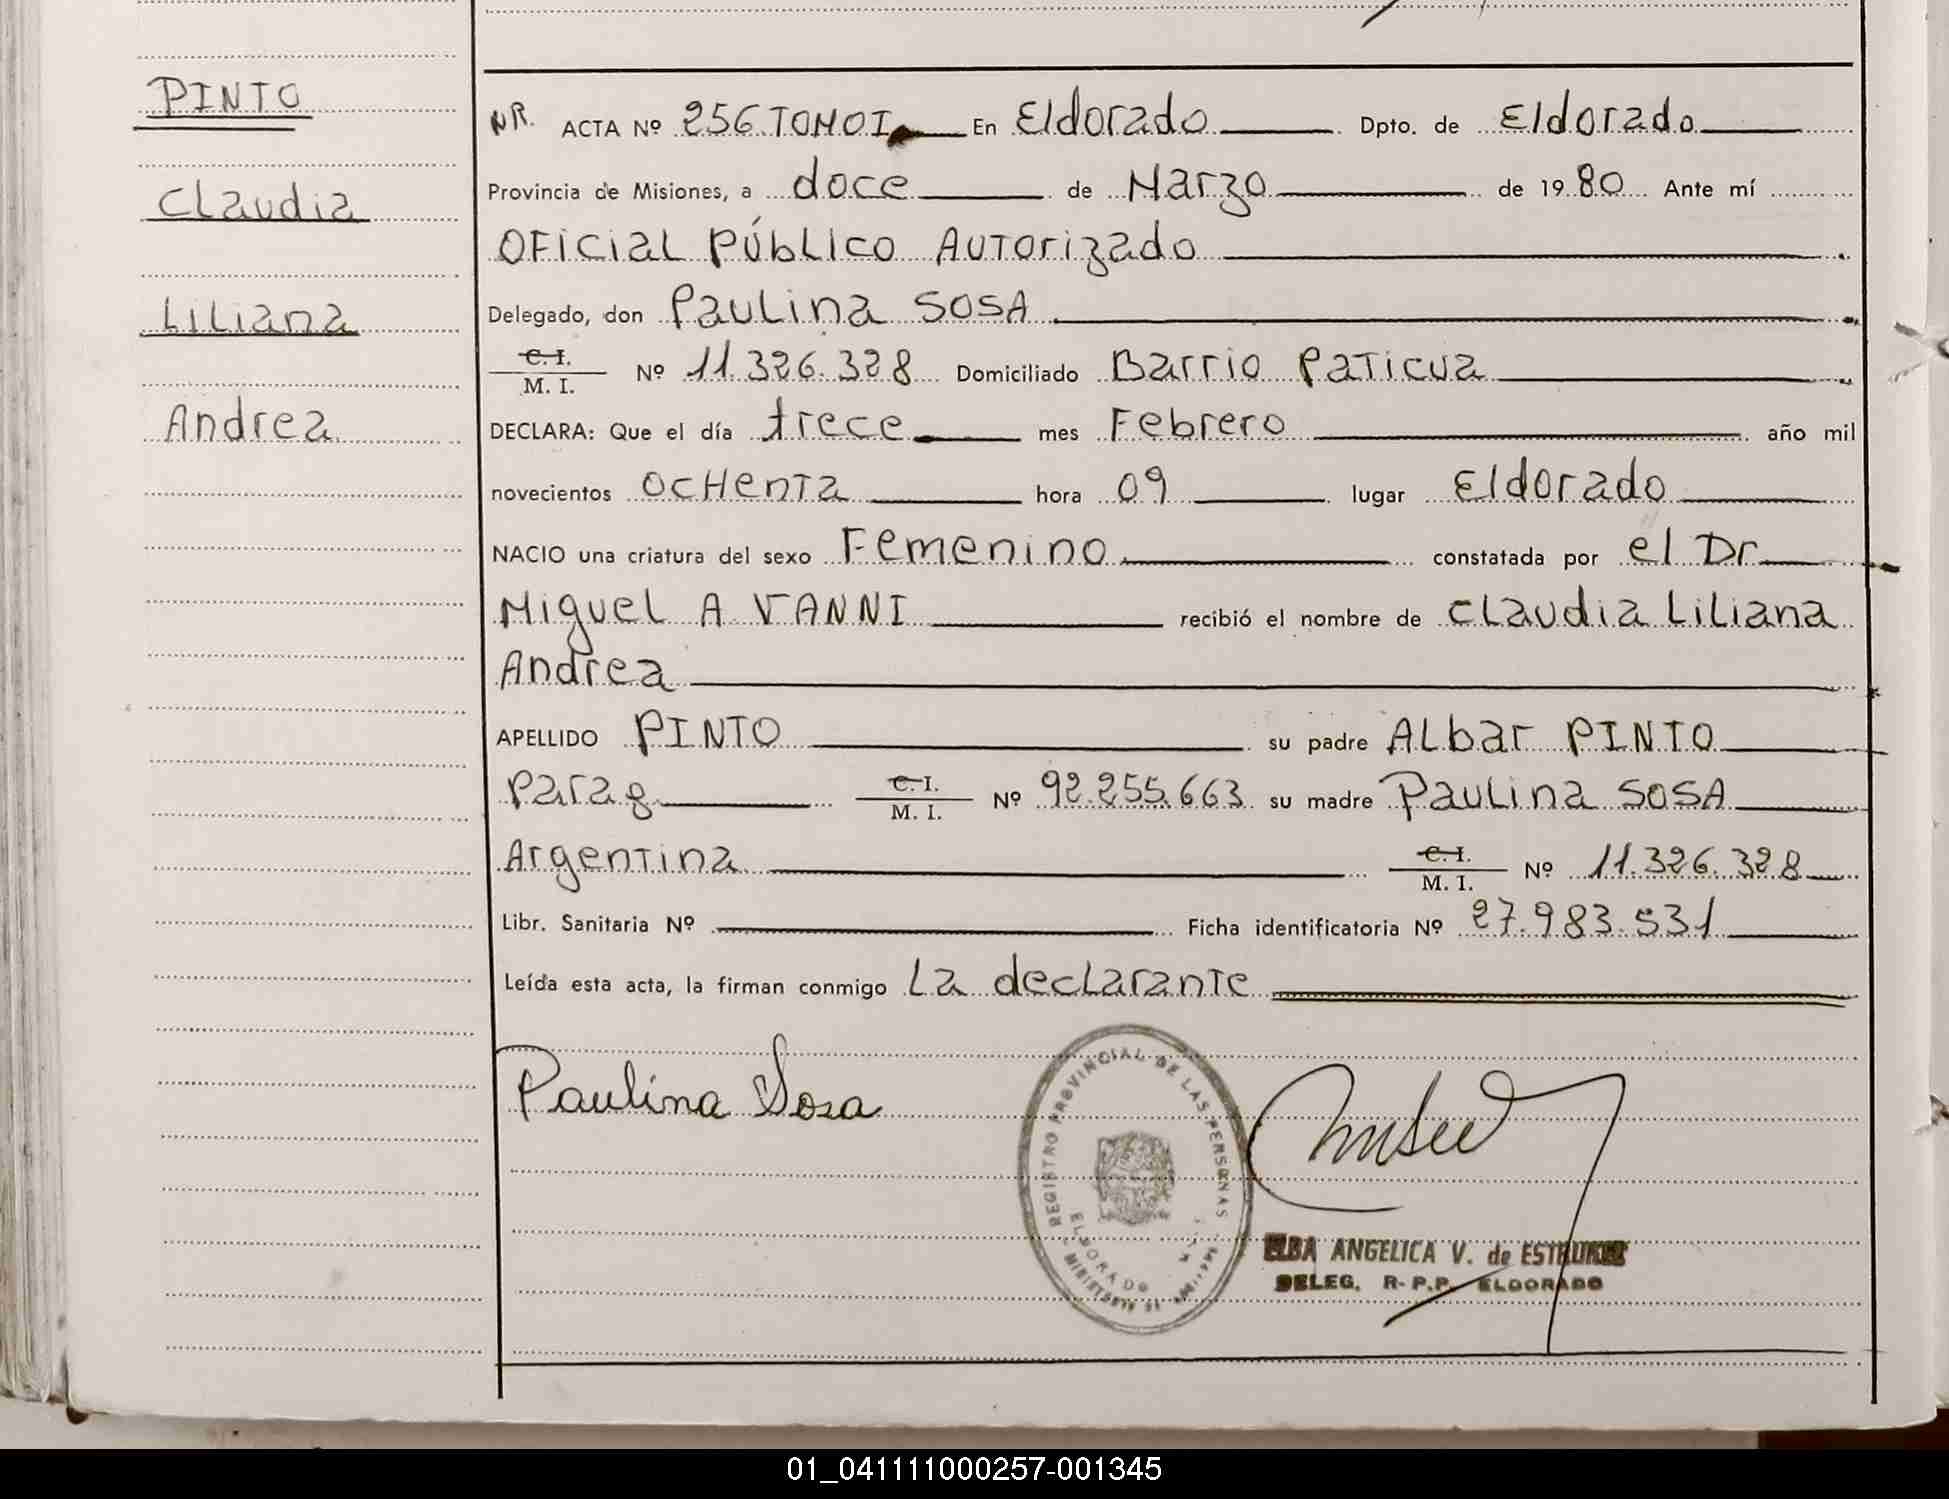 PINTO
Claudia
Liliana
Andrea
NR. ACTA Nº 256 TOMO I En Eldorado Dpto. de Eldorado
Provincia de Misiones, a doce de Marzo de 1980 Ante mí
OFICIAL PÚBLICO AUTORIZADO
Delegado, don Paulina SOSA
C. I.
M. I. Nº 11.326.328 Domiciliado Barrio Paticua
DECLARA: Que el día trece mes Febrero año mil
novecientos ochenta hora 09 lugar Eldorado
NACIO una criatura del sexo Femenino constatada por el Dr
Miguel A VANNI recibió el nombre de Claudia Liliana
Andrea
APELLIDO PINTO su padre Albar PINTO
Parag C. I.
M. I. Nº 92.255.663 su madre Paulina SOSA
Argentina C. I.
M. I. Nº 11.326.328
Libr. Sanitaria Nº Ficha identificatoria Nº 27.983.531
Leída esta acta, la firman conmigo La declarante
Paulina Sosa
REGISTRO PROVINCIAL DE LAS PERSONAS
ELDORADO
ELBA ANGELICA V. de
DELEG. R- P.P. ELDORADO
01_041111000257-001345